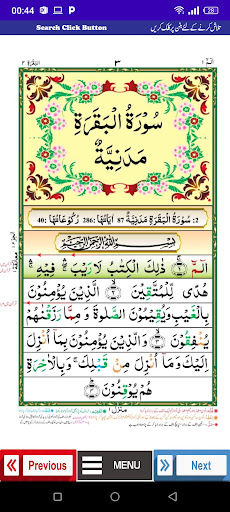 00:44
Search Click Button
تلاش کرنے کے لئے بٹن پر کلک کریں
البقرة ٢
٣
الٓمّٓ ١
سُوْرَةُ الْبَقَرَةِ
مَدَنِيَّةٌ
2: سُوْرَةُ الْبَقَرَةِ مَدَنِيَّةٌ 87 اٰيَاتُهَا: 286 رُكُوْعَاتُهَا: 40
بِسْمِ اللّٰهِ الرَّحْمٰنِ الرَّحِيْمِ
الٓمّٓ ۚ ذٰلِكَ الْكِتٰبُ لَا رَيْبَ ۛ فِيْهِ ۛ
هُدًى لِّلْمُتَّقِيْنَ ۙ الَّذِيْنَ يُؤْمِنُوْنَ
بِالْغَيْبِ وَيُقِيْمُوْنَ الصَّلٰوةَ وَمِمَّا رَزَقْنٰهُمْ
يُنْفِقُوْنَ ۙ وَالَّذِيْنَ يُؤْمِنُوْنَ بِمَاۤ اُنْزِلَ
اِلَيْكَ وَمَاۤ اُنْزِلَ مِنْ قَبْلِكَ ۚ وَبِالْاٰخِرَةِ
هُمْ يُوْقِنُوْنَ ؕ
منزل ١
Previous
MENU
Next